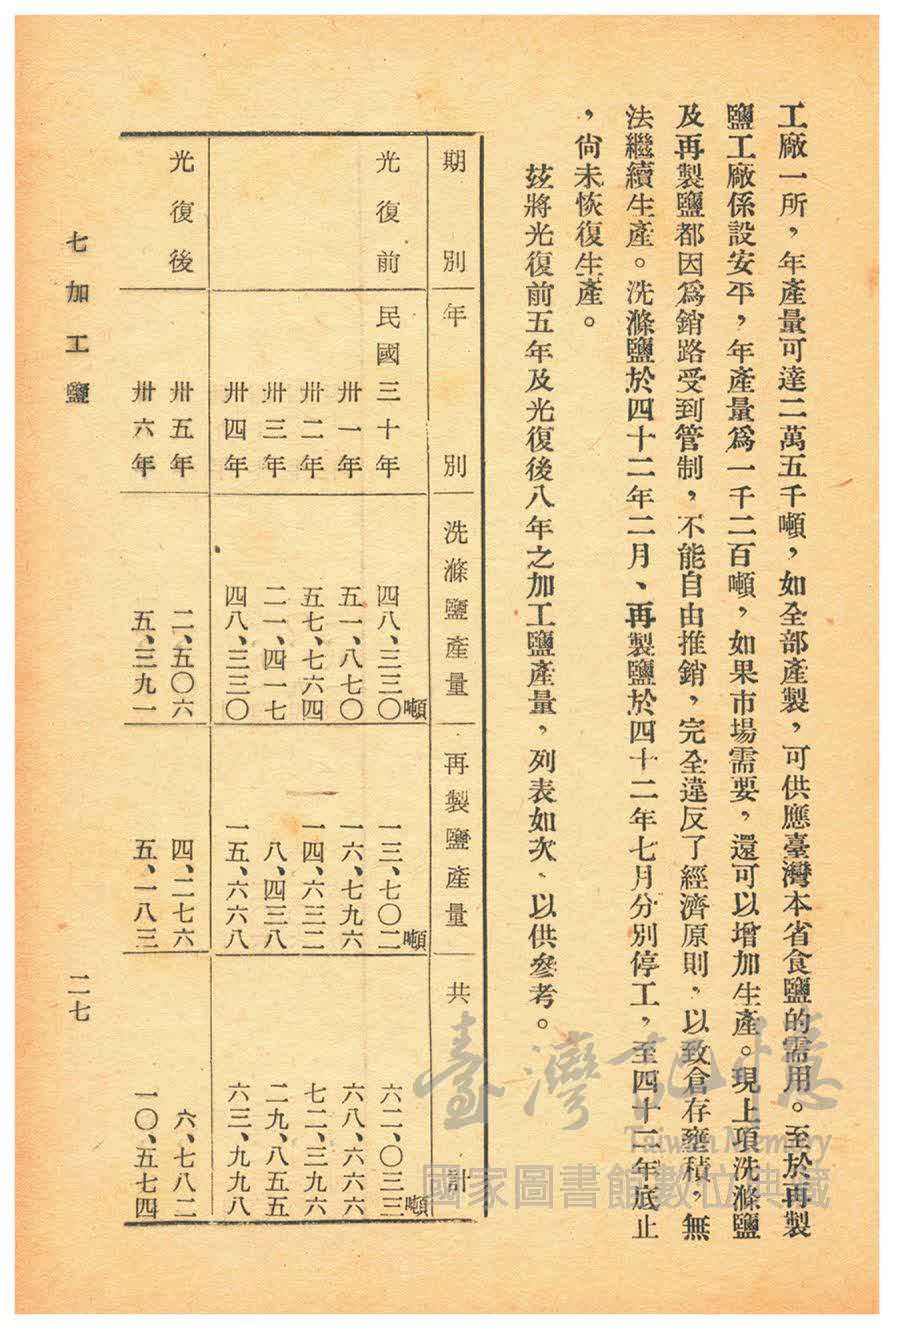 工廠一所，年產量可達二萬五千噸，如全部產製，可供應臺灣本省食鹽的需用。至於再製
鹽工廠係設安平，年產量爲一千二百噸，如果市場需要，還可以增加生產。現上項洗滌鹽
及再製鹽都因爲銷路受到管制，不能自由推銷，完全違反了經濟原則，以致倉存壅積，無
法繼續生產。洗滌鹽於四十二年二月、再製鹽於四十二年七月分別停工，至四十二年底止
，尙未恢復生產。
茲將光復前五年及光復後八年之加工鹽產量，列表如次、以供參考。
期別 年別 洗滌鹽產量 再製鹽產量 共計
光復前 民國三十年 四八、三三〇噸 一三、七〇二噸 六二、〇三三噸
卅一年 五一、八七〇 一六、七九六 六八、六六六
卅二年 五七、七六四 一四、六三二 七二、三九六
卅三年 二一、四一七 八、四三八 二九、八五五
卅四年 四八、三三〇 一五、六六八 六三、九九八
光復後 卅五年 二、五〇六 四、二七六 六、七八二
卅六年 五、三九一 五、一八三 一〇、五七四
七 加工鹽 二七
臺灣記憶
Taiwan Memory
國家圖書館數位典藏